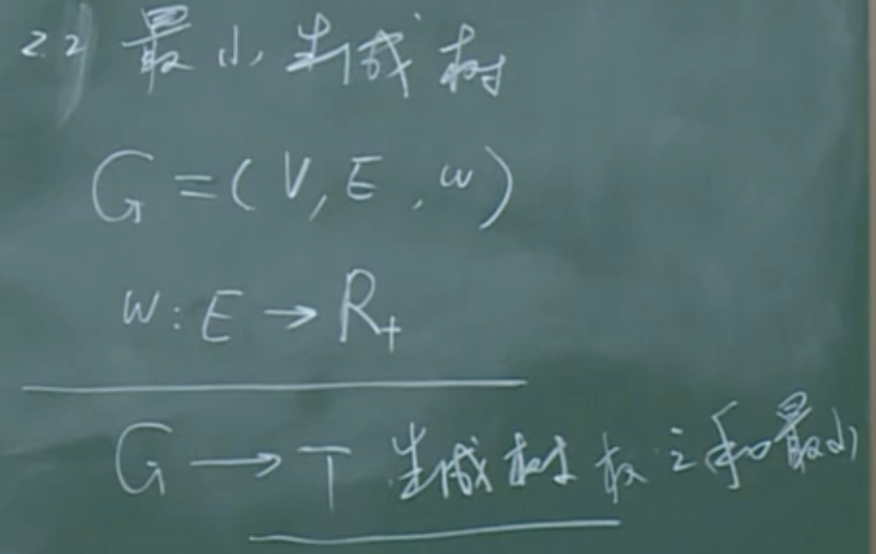 2.2) 最小生成树
G=(V,E,w)
w:E→R₊
G→T 生成树权之和最小